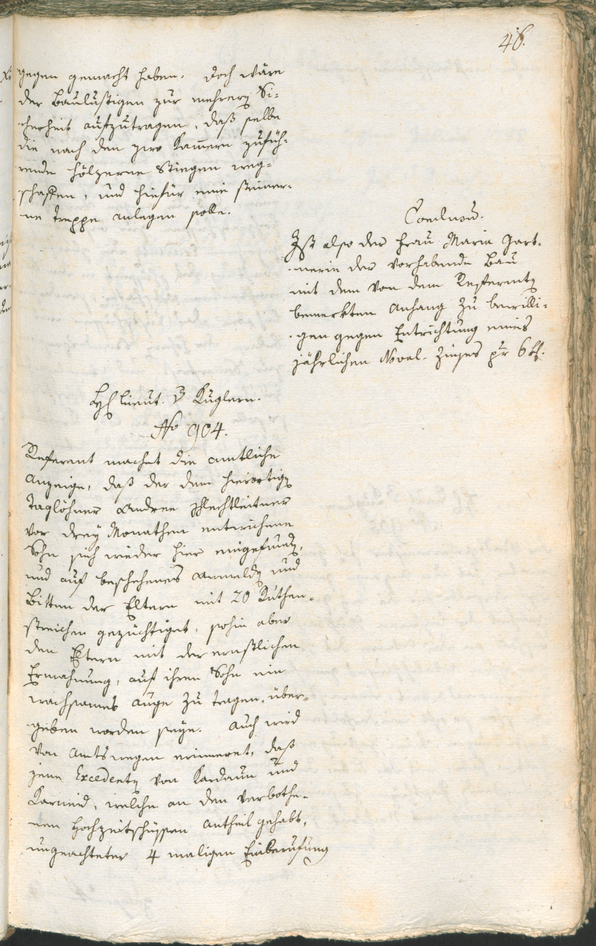 46.
gegen gemacht haben. Doch wäre
der Baulustigen zur mehrern Si-
cherheit aufzutragen, daß selbe
die nach den zwo Kamern zufüh-
rende hölzerne Stiegen weg-
schaffen, und hiefür eine steiner-
ne Treppe anlegen solle.
Conclusum.
Ist also der Frau Maria Gart-
nerin der vorhabende Bau
mit dem von dem Referenten
bemerkten Anhang zu bewilli-
gen gegen Entrichtung eines
jährlichen Noval-Zinses pr 6 kr.
lieut. v Küglern.
No 904.
Referent machet die amtliche
Anzeige, daß der dem hierortigen
Taglöhner Andree Schlechtleitner
vor drey Monathen entwichene
Sohn sich wieder hier eingefunden,
und auf beschehenes Anmelden und
Bitten der Eltern mit 20 Ruthen-
streichen gezüchtiget, sohin aber
den Eltern mit der ernstlichen
Ermahnung, auf ihren Sohn ein
wachsames Auge zu tragen, über-
geben worden seye. Auch wird
von Amtswegen erinneret, daß
jene Excedenten von Kardaun und
Karneid, welche an dem verbothe-
nen Hochzeitschüssen Antheil gehabt,
ungeachtetet 4 maligen Einberufung